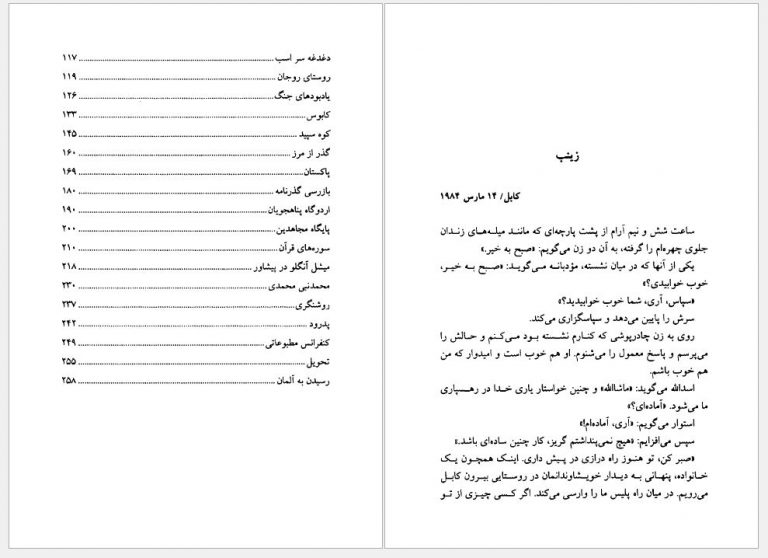 زینب
کابل/ ۱۴ مارس ۱۹۸۴
ساعت شش و نیم آرام از پشت پارچه‌ای که مانند میله‌های زندان
جلوی چهره‌ام را گرفته، به آن دو زن می‌گویم: «صبح به خیر.»
یکی از آنها که در میان نشسته، مؤدبانه می‌گوید: «صبح به خیر،
خوب خوابیدی؟»
«سپاس، آری، شما خوب خوابیدید؟»
سرش را پایین می‌دهد و سپاسگزاری می‌کند.
روی به زن چادرپوشی که کنارم نشسته بود می‌کنم و حالش را
می‌پرسم و پاسخ معمول را می‌شنوم. او هم خوب است و امیدوار که من
هم خوب باشم.
اسدالله می‌گوید: «ماشاالله» و چنین خواستار یاری خدا در رهسپاری
ما می‌شود. «آماده‌ای؟»
استوار می‌گویم: «آری، آماده‌ام!»
سپس می‌افزایم: «هیچ نمی‌پنداشتم گریز، کار چنین ساده‌ای باشد.»
«صبر کن، تو هنوز راه درازی در پیش داری. اینک همچون یک
خانواده، پنهانی به دیدار خویشاوندانمان در روستایی بیرون کابل
می‌رویم. در میان راه پلیس ما را وارسی می‌کند. اگر کسی چیزی از تو
دغدغه سر اسب ........ ۱۱۷
روستای روجان ........ ۱۱۹
یادبودهای جنگ ........ ۱۲۶
کابوس ........ ۱۳۳
کوه سپید ........ ۱۴۵
گذر از مرز ........ ۱۶۰
پاکستان ........ ۱۶۹
بازرسی گذرنامه ........ ۱۸۰
اردوگاه پناهجویان ........ ۱۹۰
پایگاه مجاهدین ........ ۲۰۰
سوره‌های قرآن ........ ۲۱۰
میشل آنگلو در پیشاور ........ ۲۱۸
محمدنبی محمدی ........ ۲۳۰
روشنگری ........ ۲۳۷
پدرود ........ ۲۴۲
کنفرانس مطبوعاتی ........ ۲۴۹
تحویل ........ ۲۵۵
رسیدن به آلمان ........ ۲۵۸